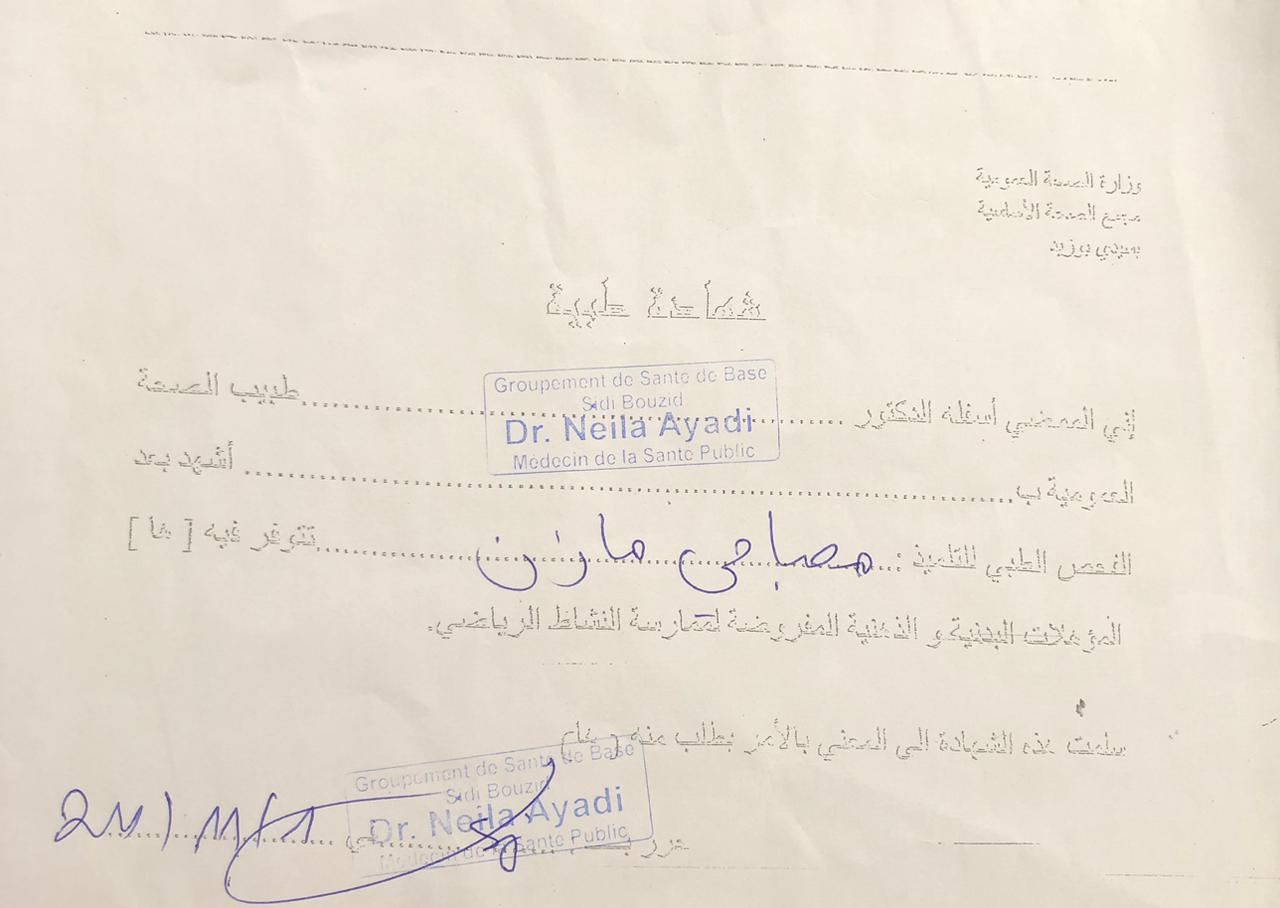 وزارة الصحة العمومية
مجمع الصحة الأساسية
بسيدي بوزيد
شهادة طبية
إني الممضي أسفله الدكتور ................ طبيب الصحة
Groupement de Sante de Base
Sidi Bouzid
Dr. Neila Ayadi
Médecin de la Sante Public
العمومية ب................ أشهد بعد
الفحص الطبي للتلميذ : مصباحي مازن تتوفر فيه [ ها ]
المؤهلات البدنية و الذهنية المفروضة لممارسة النشاط الرياضي.
سلمت هذه الشهادة الى المعني بالأمر بطلب منه ( ها )
Groupement de Sante de Base
Sidi Bouzid
Dr. Neila Ayadi
Médecin de la Sante Public
حرر ب................ في